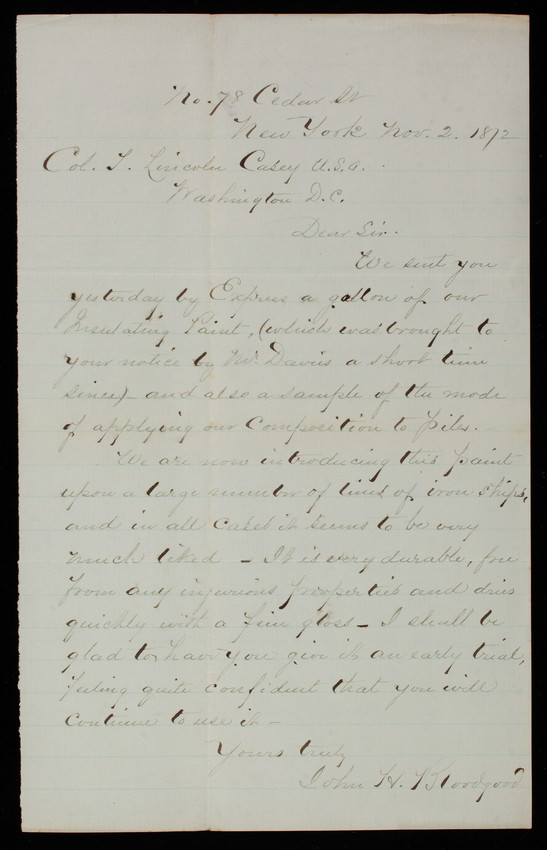 No. 78 Cedar St
New York Nov. 2. 1872
Col. T. Lincoln Casey U.S.A.
Washington D.C.
Dear Sir.
We sent you
yesterday by Express a gallon of our
Insulating Paint, (which was brought to
your notice by Mr. Davies a short time
since) - and also a sample of the mode
of applying our Composition to piles. -
We are now introducing this paint
upon a large number of lines of iron ships,
and in all cases it seems to be very
much liked - It is very durable, free
from any injurious properties and dries
quickly with a fine gloss - I shall be
glad to have you give it an early trial,
feeling quite confident that you will
continue to use it -
Yours truly
John H. Bloodgood